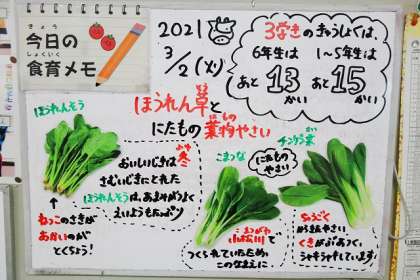 きょう
今日の
しょくいく
食育メモ
2021
3/2(火)
3学きのきゅうしょくは、
6年生は 1～5年生は
あと13かい あと15かい
ほうれん草と
にたもの葉物やさい
ほうれんそう
おいしいじきは冬
さむいじきにとれた
ほうれんそうは、あまみがつよく
えいようもたっぷり
↑
ねっこのさきが
あかいのが
とくちょう!
こまつな
にたもの
やさい
チンゲン菜
えどがわ
小松川で
つくられていたため
このなまえに
ちゅうごく
くきがぶあつく
シャキシャキしています!